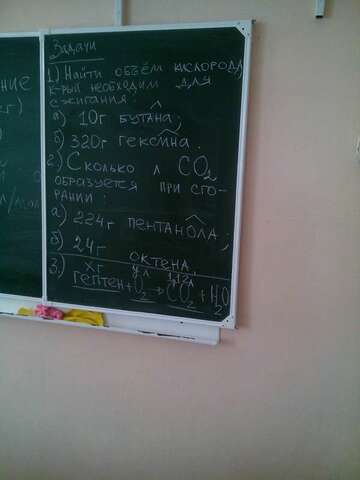 Задачи
1) Найти объём кислорода,
к-рый необходим для
сжигания:
а) 10г бутана;
б) 320г гексина.
2) Сколько л CO2
образуется при сго-
рании:
а) 224г пентанола;
б) 24г октена.
3.) xг yл 112л
гептен + O2 → CO2 + H2O
ние
кг)